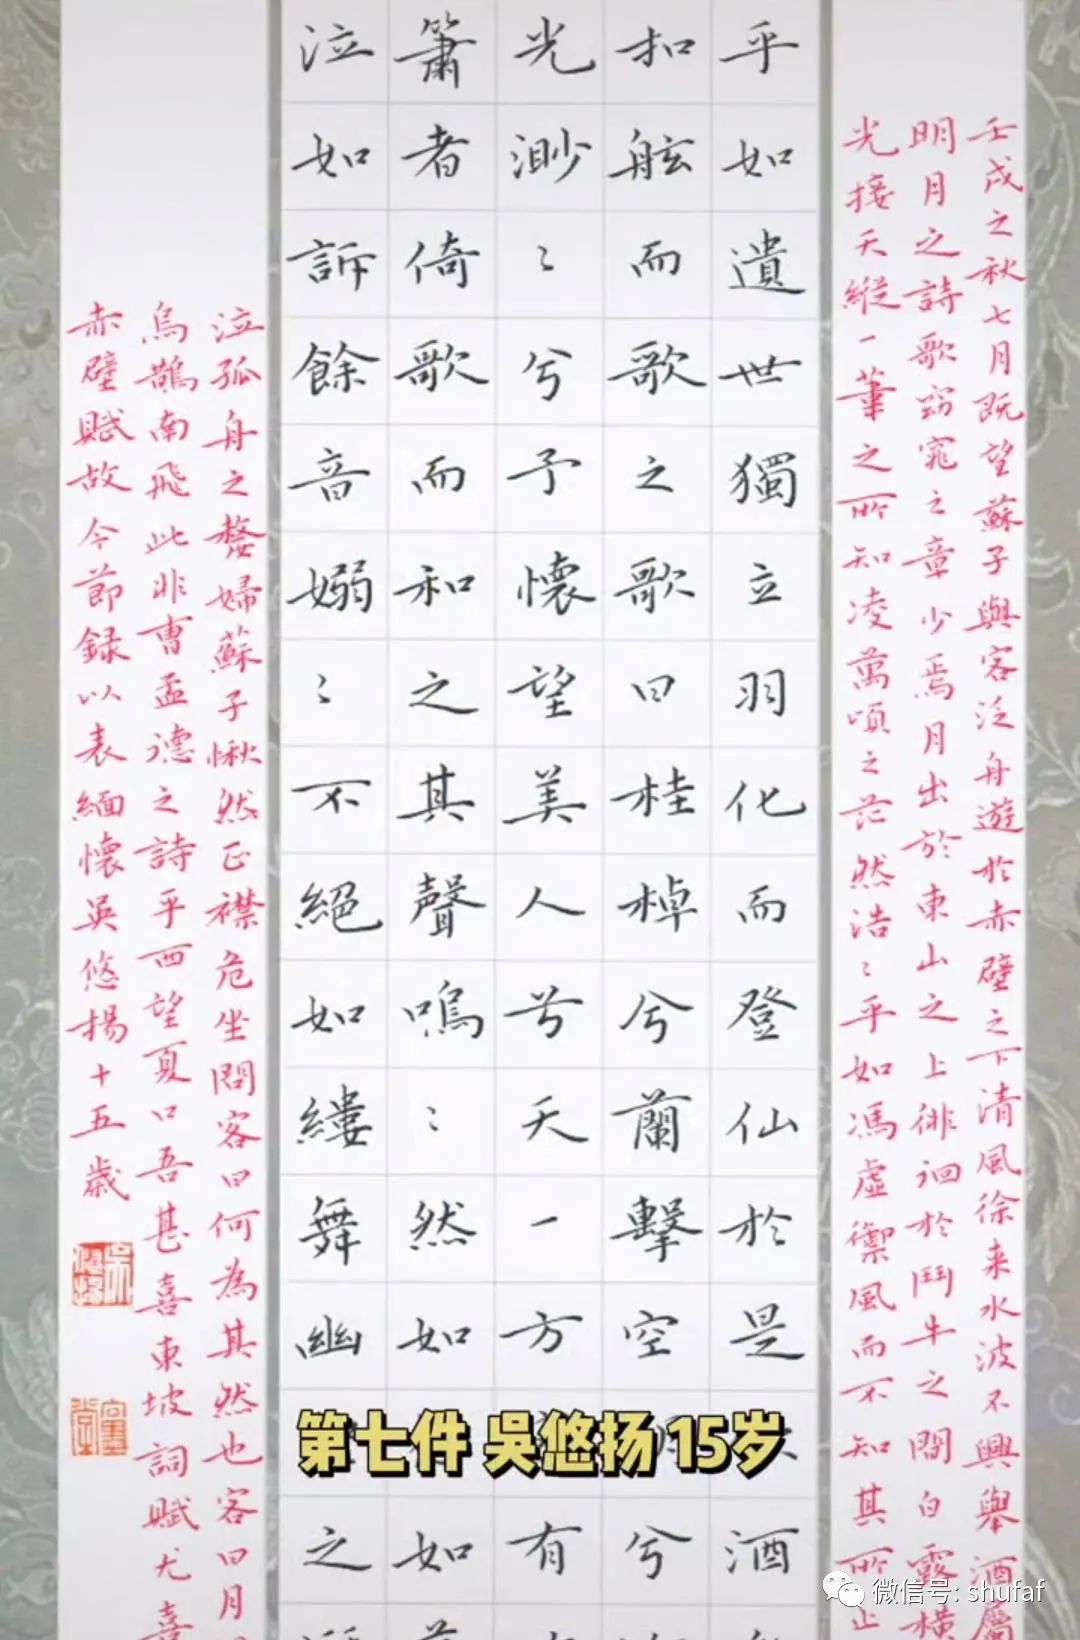 壬戌之秋七月既望蘇子與客泛舟遊於赤壁之下清風徐来水波不興舉酒屬
明月之詩歌窈窕之章少焉月出於東山之上徘徊於鬥牛之間白露橫
光接天縱一葦之所知凌萬頃之茫然浩〻乎如馮虛禦風而不知其所止
乎如遺世獨立羽化而登仙於是酒
扣舷而歌之歌曰桂棹兮蘭擊空兮
光渺〻兮予懷望美人兮天一方有
簫者倚歌而和之其聲嗚〻然如如
泣如訴餘音嫋〻不絕如縷舞幽之
泣孤舟之嫠婦蘇子愀然正襟危坐問客曰何為其然也客曰月
烏鵲南飛此非曹孟德之詩乎西望夏口吾甚喜東坡詞賦尤喜
赤壁賦故今節録以表緬懷吳悠揚十五歲
第七件 吳悠扬 15岁
微信号: shufaf